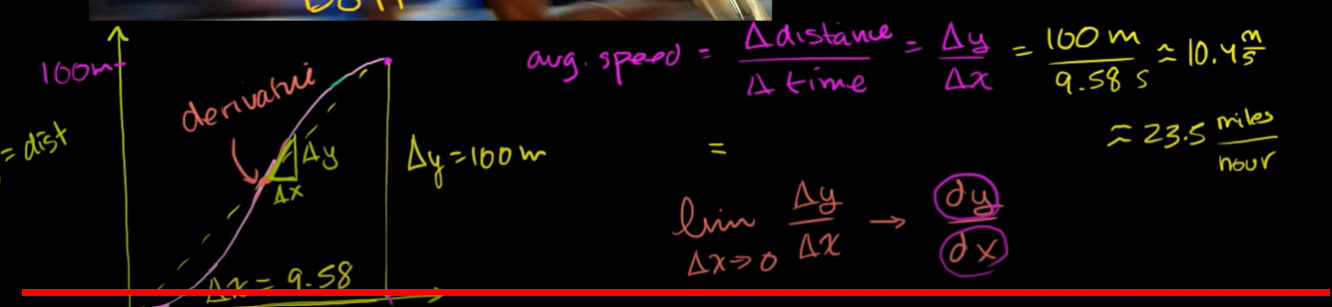 100m
= dist
derivative
Δy
Δx
Δy = 100m
Δx = 9.58
avg. speed = Δdistance / Δtime = Δy / Δx = 100 m / 9.58 s ≈ 10.4 m/s
≈ 23.5 miles / hour
=
lim Δx→0 Δy / Δx → dy / dx